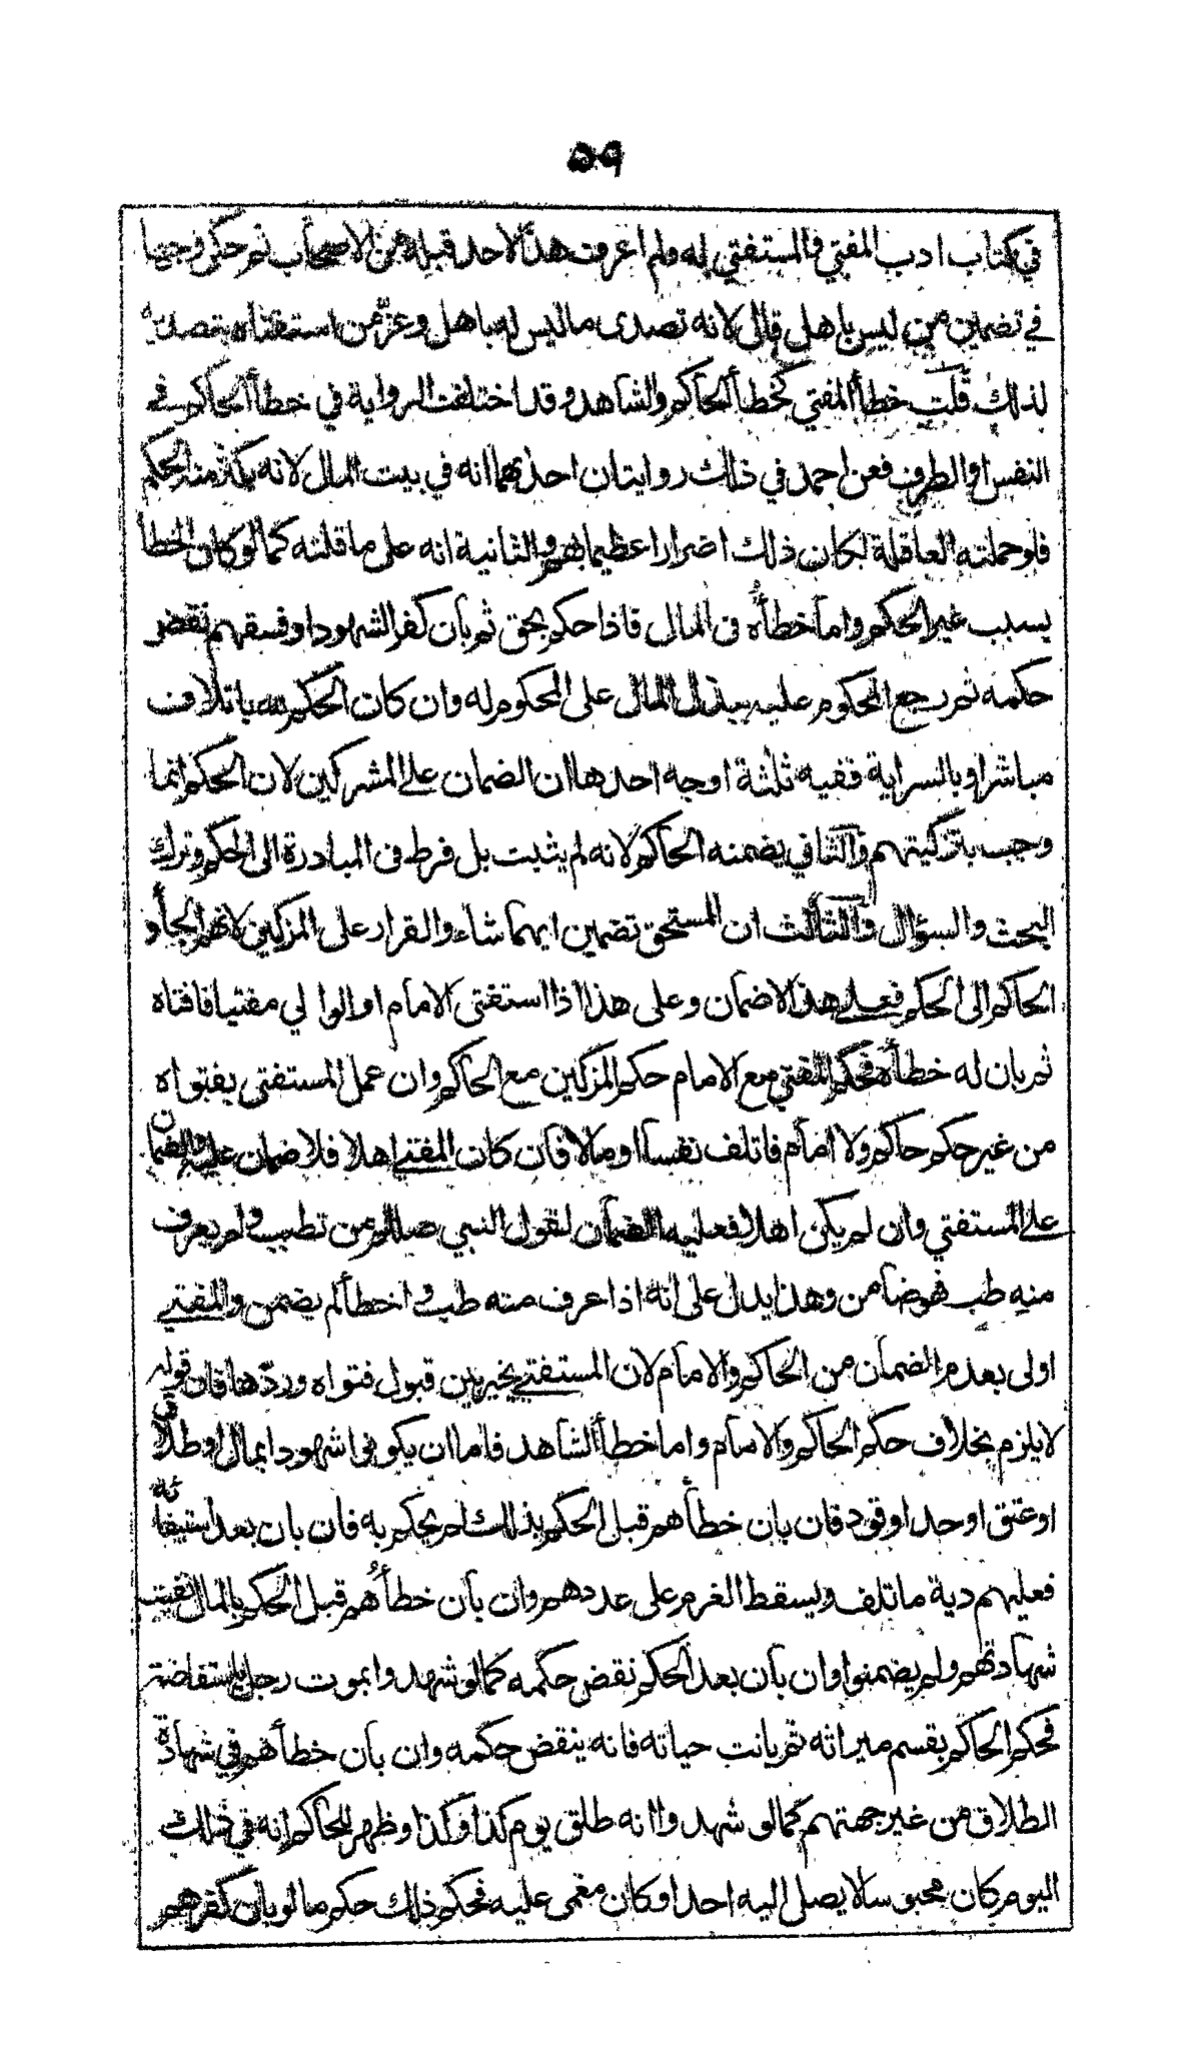 ٥٩
في كتاب ادب المفتي والمستفتي له ولم اعرف هذا لاحد قبله من الاصحاب ثم حكى وجها
في تضمين من ليس باهل قال لانه تصدى ما ليس له باهل وغر من استفتاه بتصديه
لذلك قلت خطأ المفتي كخطأ الحاكم والشاهد وقد اختلفت الرواية في خطأ الحاكم في
النفس او الطرف فعن احمد في ذلك روايتان احدٰهما انه في بيت المال لانه يكثر منه الحكم
فلو حملته العاقلة لكان ذلك اضرارا عظيما بهم والثانية انه على عاقلته كما لو كان الخطأ
بسبب غير الحكم واما خطأه فى المال فاذا حكم بحق ثم بان كفر الشهود او فسقهم نقض
حكمه ثم رجع المحكوم عليه ببدل المال على المحكوم له وان كان الحكم لله باتلاف
مباشر او بالسراية ففيه ثلثة اوجه احدها ان الضمان على المشركين لان الحكم انما
وجب بتزكيتهم والثاني يضمنه الحاكم لانه لم يثبت بل فرط فى المبادرة الى الحكم وترك
البحث والسؤال والثالث ان المستحق تضمين ايهما شاء والقرار على المزكين لانهم الجأوا
الحاكم الى الحكم فعلى هذا لا ضمان وعلى هذا اذا استفتى الامام او الوالي مفتيا فافتاه
ثم بان له خطأه فحكم المفتي مع الامام حكم المزكين مع الحاكم وان عمل المستفتى بفتواه
من غير حكم حاكم ولا امام فاتلف نفسا او مالا فان كان المفتي اهلا فلا ضمان عليه والضمان
على المستفتي وان لم يكن اهلا فعليه الضمان لقول النبي صللم من تطبب ولم يعرف
منه طب فهو ضامن وهذا يدل على انه اذا عرف منه طب واخطأ لم يضمن والمفتي
اولى بعدم الضمان من الحاكم والامام لان المستفتي يخير بين قبول فتواه وردّها فان قوله
لا يلزم بخلاف حكم الحاكم والامام واما خطأ الشاهد فاما ان يكونوا شهودا بمال او طلاق
او عتق او حد او قود فان بان خطأهم قبل الحكم بذلك لم يحكم به فان بان بعد استيفائه
فعليهم دية ما تلف ويسقط الغرم على عددهم وان بان خطأهم قبل الحكم بالمال لغيت
شهادتهم ولم يضمنوا وان بان بعد الحكم نقض حكمه كما لو شهدوا بموت رجل باستفاضة
فحكم الحاكم بقسم ميراثه ثم بانت حياته فانه ينقض حكمه وان بان خطأهم في شهادة
الطلاق من غير جهتهم كما لو شهدوا انه طلق يوم كذا وكذا وظهر للحاكم انه في ذلك
اليوم كان محبوسا لا يصل اليه احد او كان مغمى عليه فحكم ذلك حكم ما لو بان كفرهم